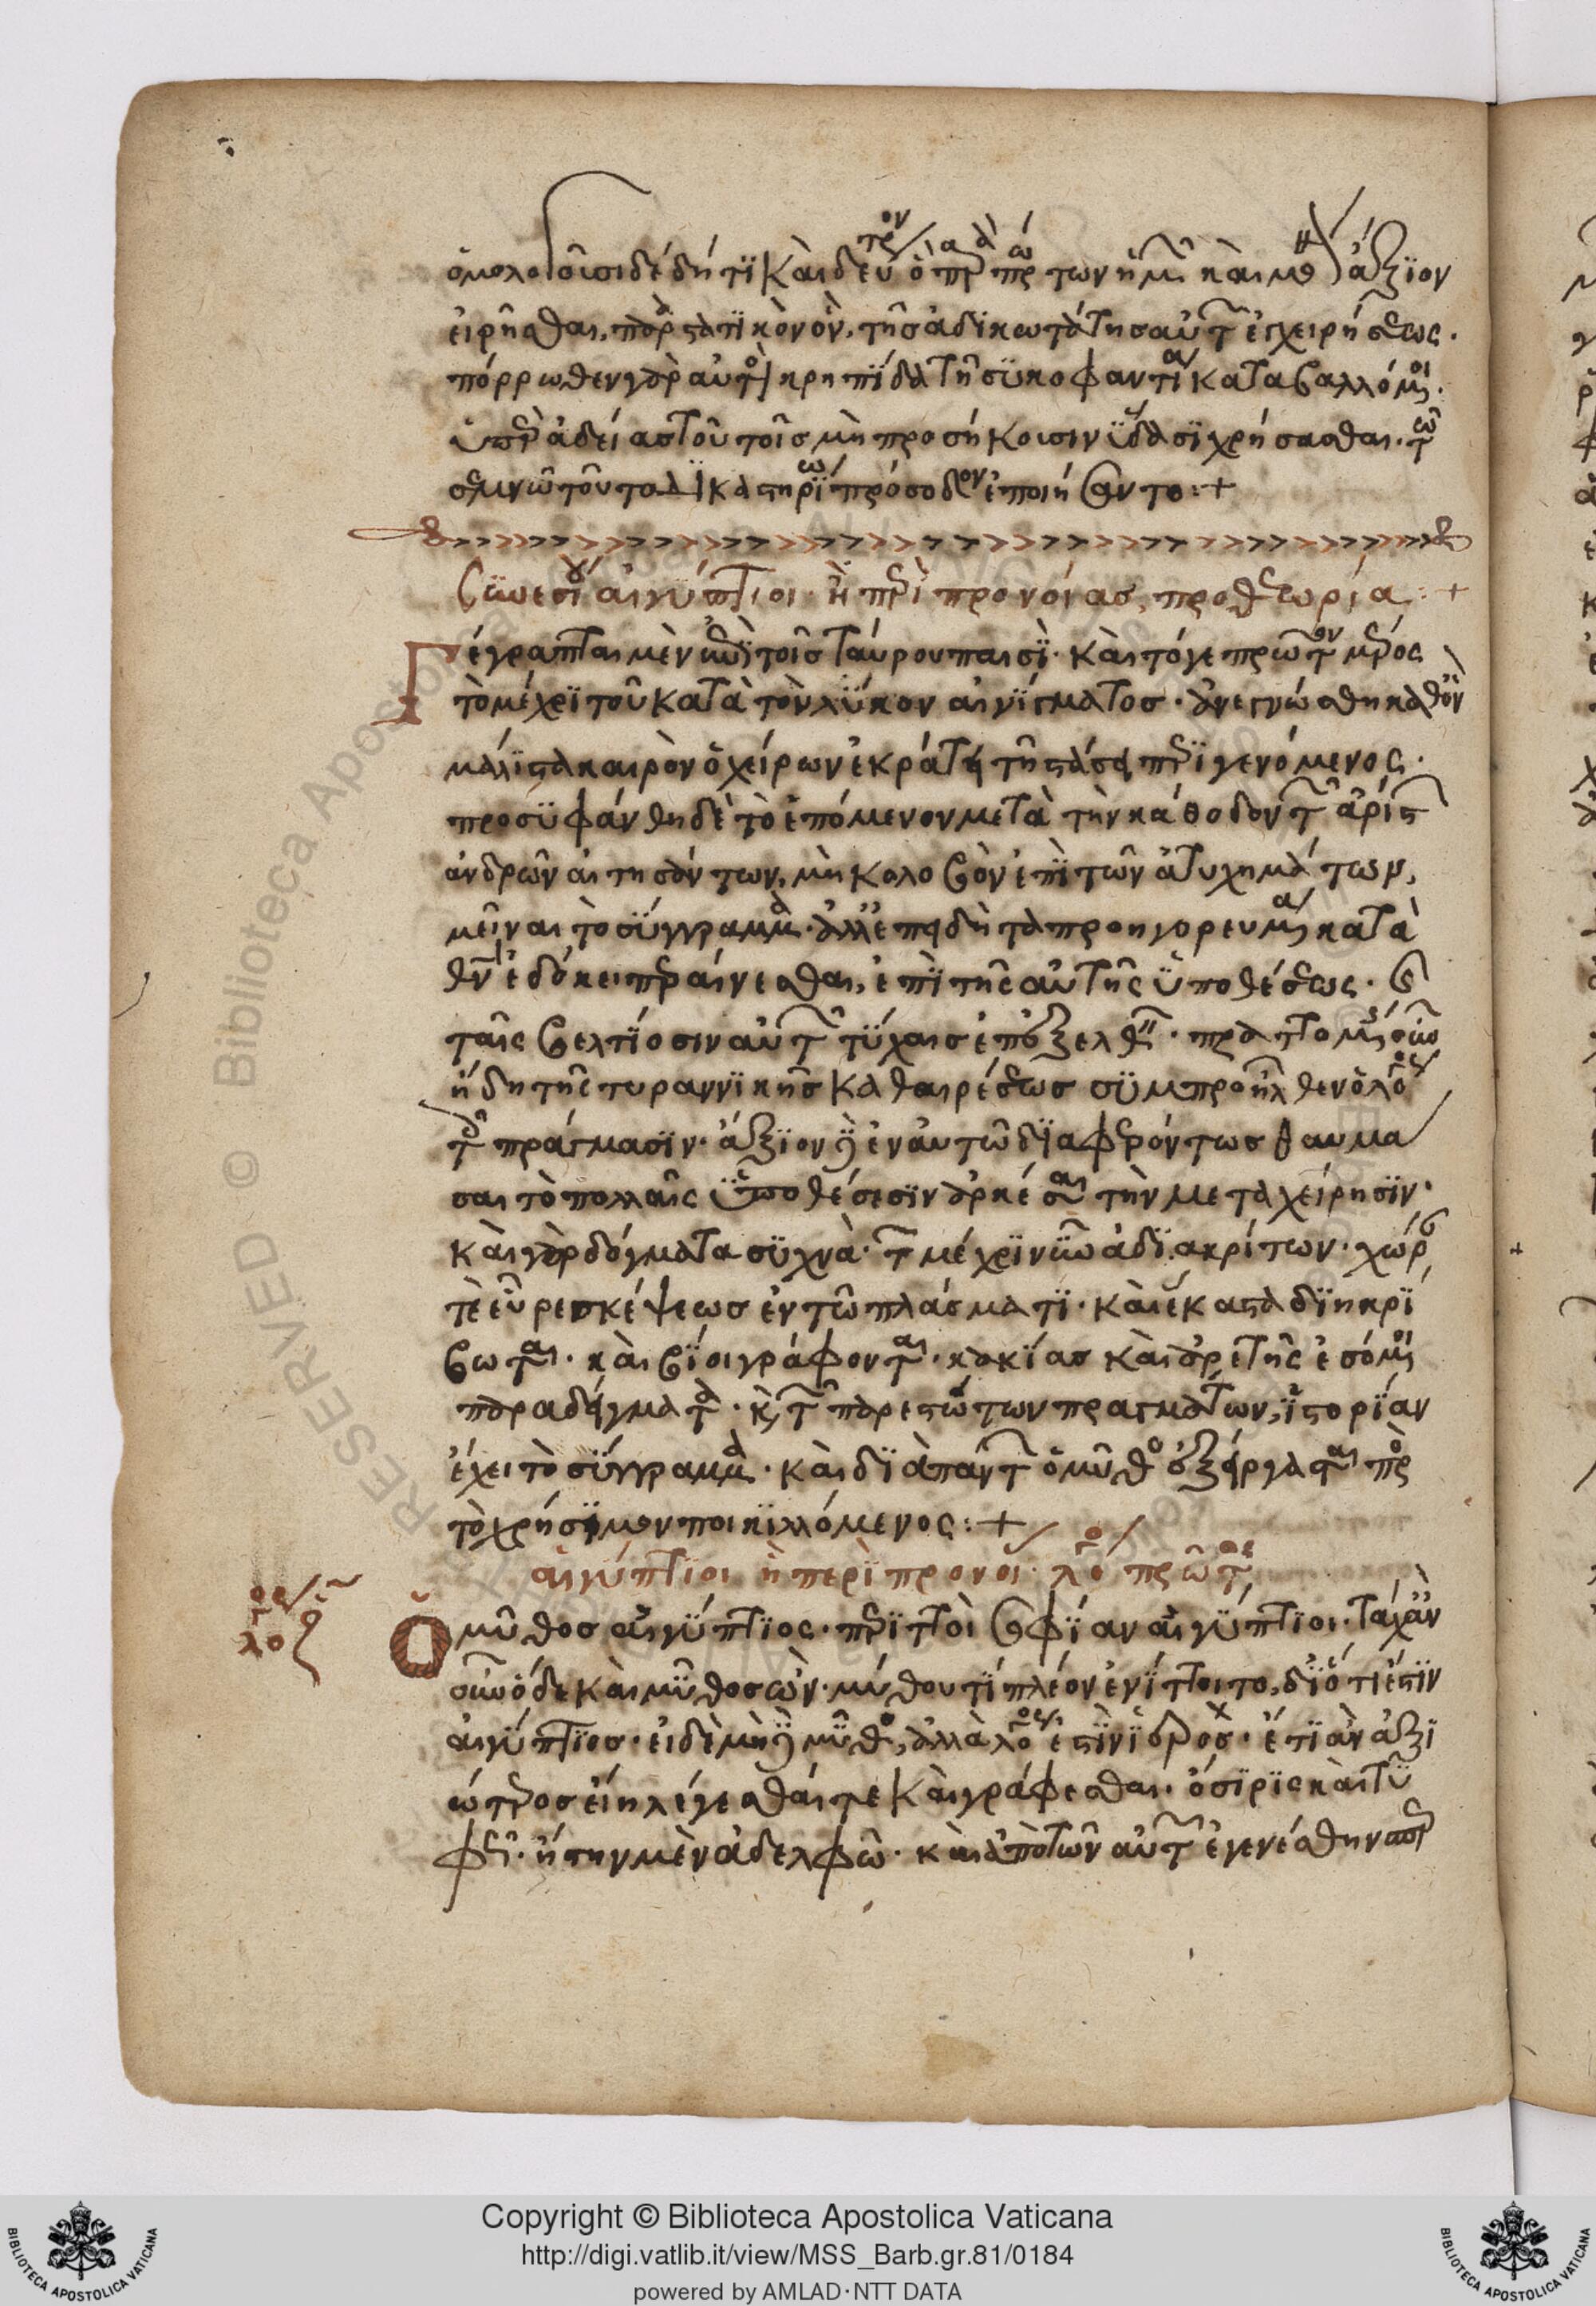 ὁμολογοῦσι δὲ δή τι καὶ δεύτερον ὁ πατὴρ πρὸς τῶν ἡμῖν καὶ μεθ ἄξιον
εἰρῆσθαι, παραστατικὸν ὂν, τῆς ἀδικωτάτης αὐτῶν ἐγχειρήσεως.
πόρρωθεν γὰρ αὐτοὶ κρηπῖδα τῇ συκοφαντίᾳ καταβαλλόμενοι.
ὑπὲρ ἀδείας τοῦ τοῖς μὴ προσήκουσιν ὕδασι χρήσασθαι. τῶ
σεμνῶ τούτω δικαστηρίω πρόσοδον ἐποιήσαντο:+
Συνεσίου αἰγύπτιοι· ἢ περὶ προνοίας, προθεωρία:+
Γέγραπται μὲν ἐπὶ τοῖς Ταύρου παισὶ· καὶ τό γε πρῶτον μέρος
τὸ μέχρι τοῦ κατὰ τὸν λύκον αἰνίγματος· ἀνεγνώσθη καθ᾽ ὃν
μάλιστα καιρὸν ὁ χείρων ἐκράτει τῇ στάσει περιγενόμενος·
προσυφάνθη δὲ τὸ ἑπόμενον μετὰ τὴν κάθοδον τῶν ἀρίστων
ἀνδρῶν αἰτησάντων, μὴ κολοβὸν ἐπὶ τῶν ἀτυχημάτων,
μεῖναι τὸ σύγγραμμα· ἀλλ᾽ ἐπειδὴ τὰ προηγορευμένα κατὰ
θεὸν ἐδόκει περαίνεσθαι, ἐπὶ τῆς αὐτῆς ὑποθέσεως· καὶ
ταῖς βελτίοσιν αὐτῶν τύχαις ἐπεξελθεῖν· πραττομένης οὖν
ἤδη τῆς τυραννικῆς καθαιρέσεως συμπροῆλθεν ὁ λόγος
τοῖς πράγμασιν· ἄξιον γὰρ ἐν αὐτῶ διαφερόντως θαυμά
σαι τὸ πολλαῖς ὑποθέσεσιν ἀρκέσαι τὴν μεταχείρησιν·
καὶ γὰρ δόγματα συχνὰ· τῶν μέχρι νῦν ἀδιακρίτων· χώραν
τὲ εὗρε σκέψεως ἐν τῶ πλάσματι· καὶ ἕκαστα διηκρί
βωται· καὶ βίοι γράφονται· κακίας καὶ ἀρετῆς ἐσόμενοι
παραδείγματα· καὶ τῶν παρεστώτων πραγμάτων, ἱστορίαν
ἔχει τὸ σύγγραμμα· καὶ δι᾽ ἁπάντων ὁ μῦθος ἐξείργασται πρὸς
τὸ χρήσιμον ποικιλλόμενος:+
αἰγύπτιοι ἢ περὶ προνοίας· λόγος πρῶτος
Ὁ μῦθος αἰγύπτιος· περιττοὶ σοφίαν αἰγύπτιοι· τάχ᾽ ἂν
οὖν ὅδε καὶ μῦθος ὢν· μύθου τι πλέον αἰνίττοιτο, διότι ἐστὶν
αἰγύπτιος· εἰ δὲ μὴ δὲ μῦθος, ἀλλὰ λόγος ἐστὶν ἱερὸς· ἔτι ἂν ἀξι
ώτερος εἴη λέγεσθαί τε καὶ γράφεσθαι. ὄσιρις καὶ τυ
φὼς· ἤστην μὲν ἀδελφῶ· καὶ ἀπὸ τῶν αὐτῶν ἐγενέσθην σπερ
Copyright © Biblioteca Apostolica Vaticana
http://digi.vatlib.it/view/MSS_Barb.gr.81/0184
powered by AMLAD·NTT DATA